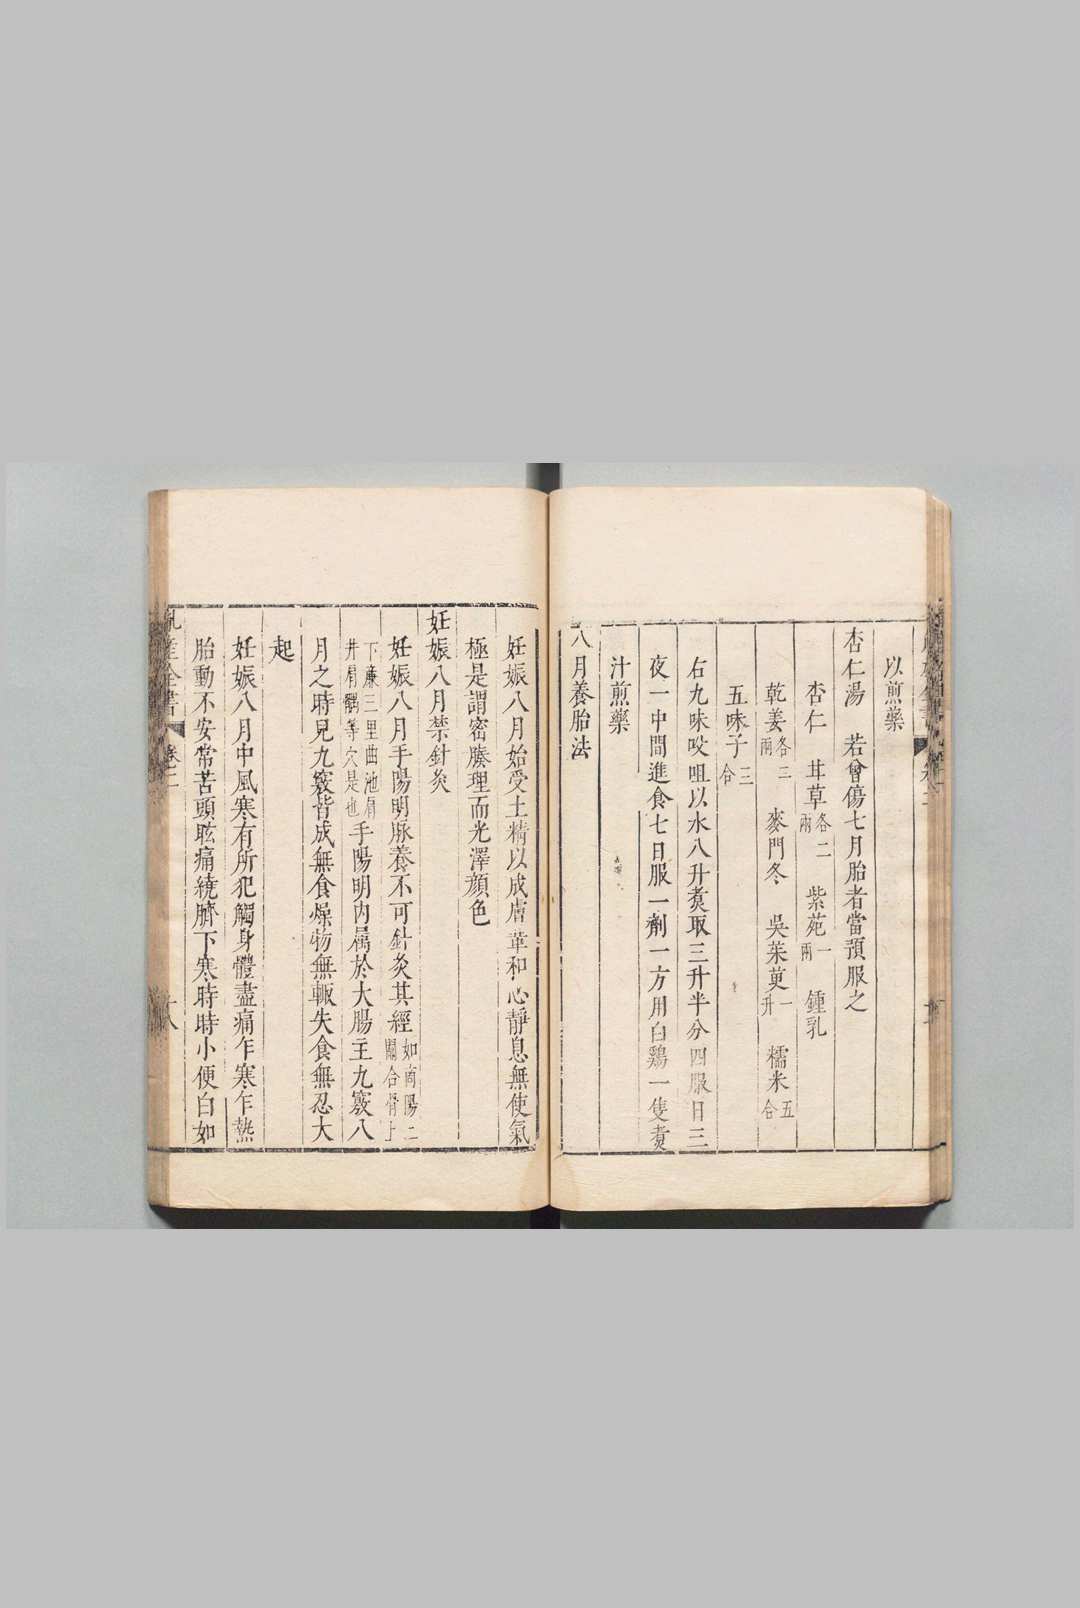 以煎藥
杏仁湯　若曾傷七月胎者當預服之
杏仁　茸草各二兩　紫苑一兩　鍾乳
乾姜各二兩　麥門冬　吳茱萸一升　糯米五合
五味子三合
右九味㕮咀以水八升煮取三升半分四服日三
夜一中間進食七日服一劑一方用白鷄一隻煮
汁煎藥
八月養胎法
妊娠八月始受土精以成膚革和心靜息無使氣
極是謂密腠理而光澤顔色
妊娠八月禁針灸
妊娠八月手陽明脉養不可針灸其經如商陽二間合骨上
下廉三里曲池肩井肩髃等穴是也手陽明内属於大腸主九竅八
月之時兒九竅皆成無食燥物無輙失食無忍大
起
妊娠八月中風寒有所犯觸身體盡痛乍寒乍熱
胎動不安常苦頭眩痛繞臍下寒時時小便白如
産全書
卷二
十八